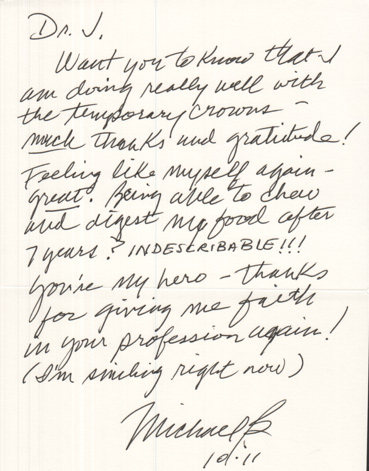 Dr. J.
Want you to know that I
am doing really well with
the temporary crowns –
much thanks and gratitude!
Feeling like myself again –
great. Being able to chew
and digest my food after
7 years? INDESCRIBABLE!!!
You're my hero – thanks
for giving me faith
in your profession again!
(I'm smiling right now)
Michael
10.11